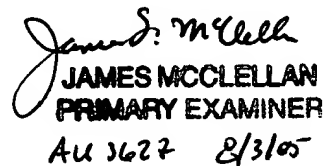 James S. McClellan
JAMES MCCLELLAN
PRIMARY EXAMINER
AU 3627 8/3/05